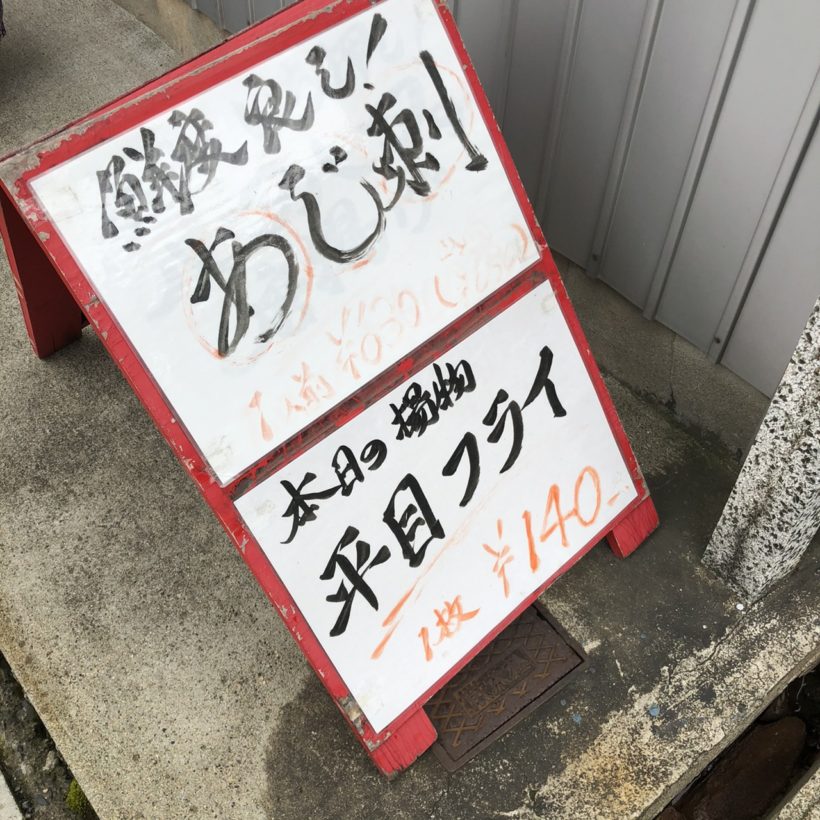 鮮度良し!
あじ刺
1人前
本日の揚物
平目フライ
1枚 ¥140-